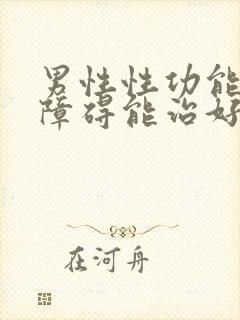 男性性功能
障碍能治好
在河舟